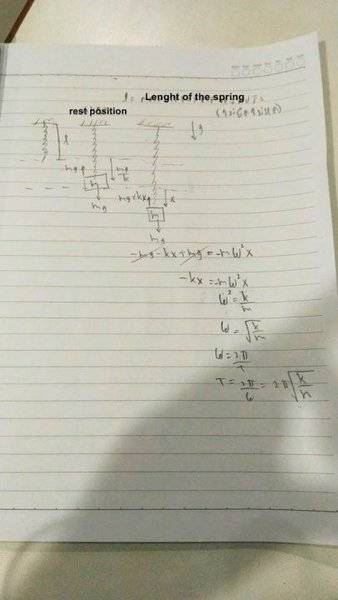 Lenght of the spring
rest position
l
g
mg
k
m
mg
mg+kx
x
m
mg
-mg-kx+mg = -mω²x
-kx = -mω²x
ω² = k/m
ω = √k/m
ω = 2π/T
T = 2π/ω = 2π√k/m